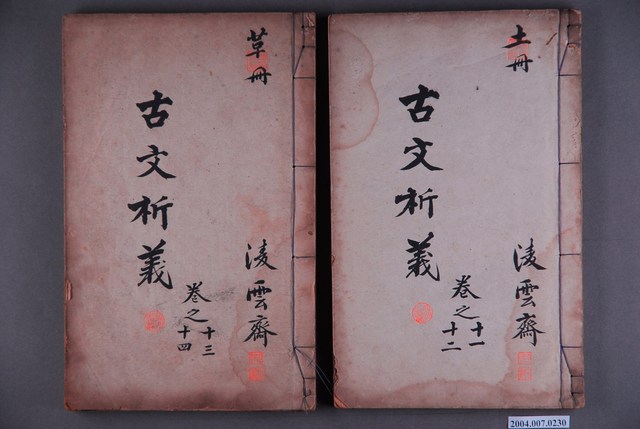 土冊
古文析義
卷之十一
十二
淩雲齋
草冊
古文析義
卷之十三
十四
淩雲齋
2004.007.0230